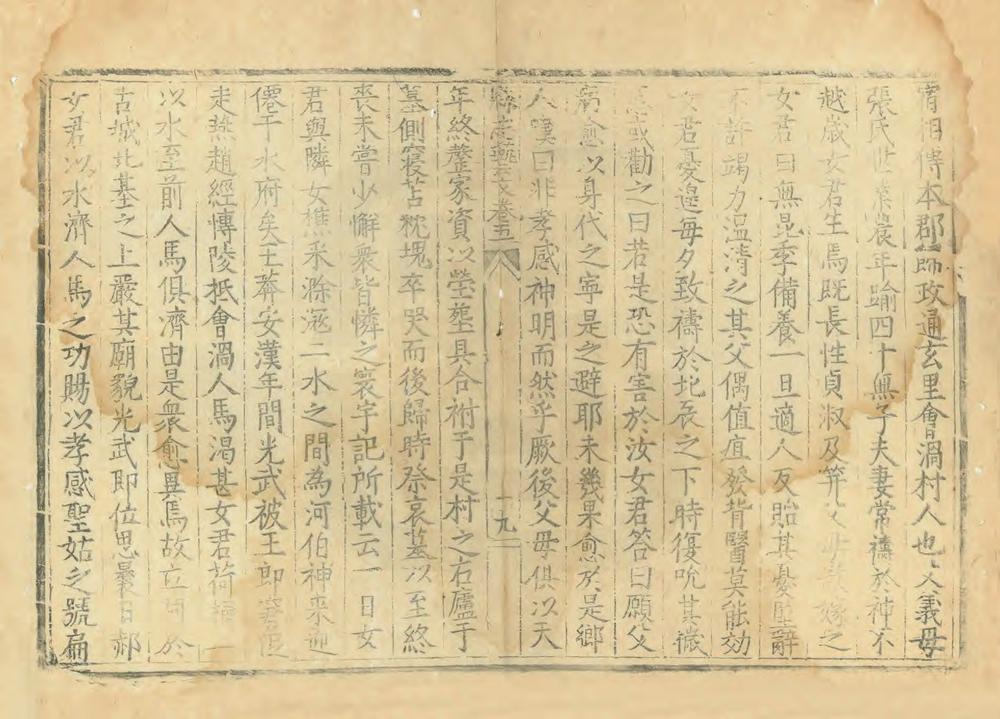 甯相傳本郡師政通玄里會渦村人也父義母
張氏世業農年踰四十無子夫妻常禱於神不
越歲女君生焉既長性貞淑及笄父母嫁之
女君曰無昆季備養一旦適人反貽其憂堅辭
不許竭力溫凊之其父偶値疽發背醫莫能効
女君憂遑每夕致禱於北辰之下時復吮其
或勸之曰若是恐有害於汝女君答曰願父
病愈以身代之寧是之避耶未幾果愈於是鄉
人嘆曰非孝感神明而然乎厥後父母俱以天
縣志藝文卷五
十九
年終罄家資以塋壟具合祔于是村之右廬于
墓側寢苫枕塊卒哭而後歸時祭哀墓以至終
喪未嘗少懈衆皆憐之寰宇記所載云一日女
君與隣女樵采滁滱二水之間為河伯神來迎
僊于水府矣王莽安漢年間光武被王郎
走燕趙經傳陵抵會渦人馬渴甚女君荷一
以水至前人馬俱濟由是衆愈異焉故立於
古城北基之上嚴其廟貌光武即位思曩日郝
女君以水濟人馬之功賜以孝感聖姑之號扁